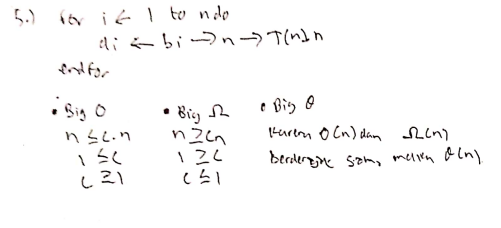 5.) for i ← 1 to n do
di ← bi → n → T(n) = n
endfor
• Big O
n ≤ c.n
1 ≤ c
c ≥ 1
• Big Ω
n ≥ cn
1 ≥ c
c ≤ 1
• Big θ
Karena O(n) dan Ω(n)
berderajat sama, maka θ(n)